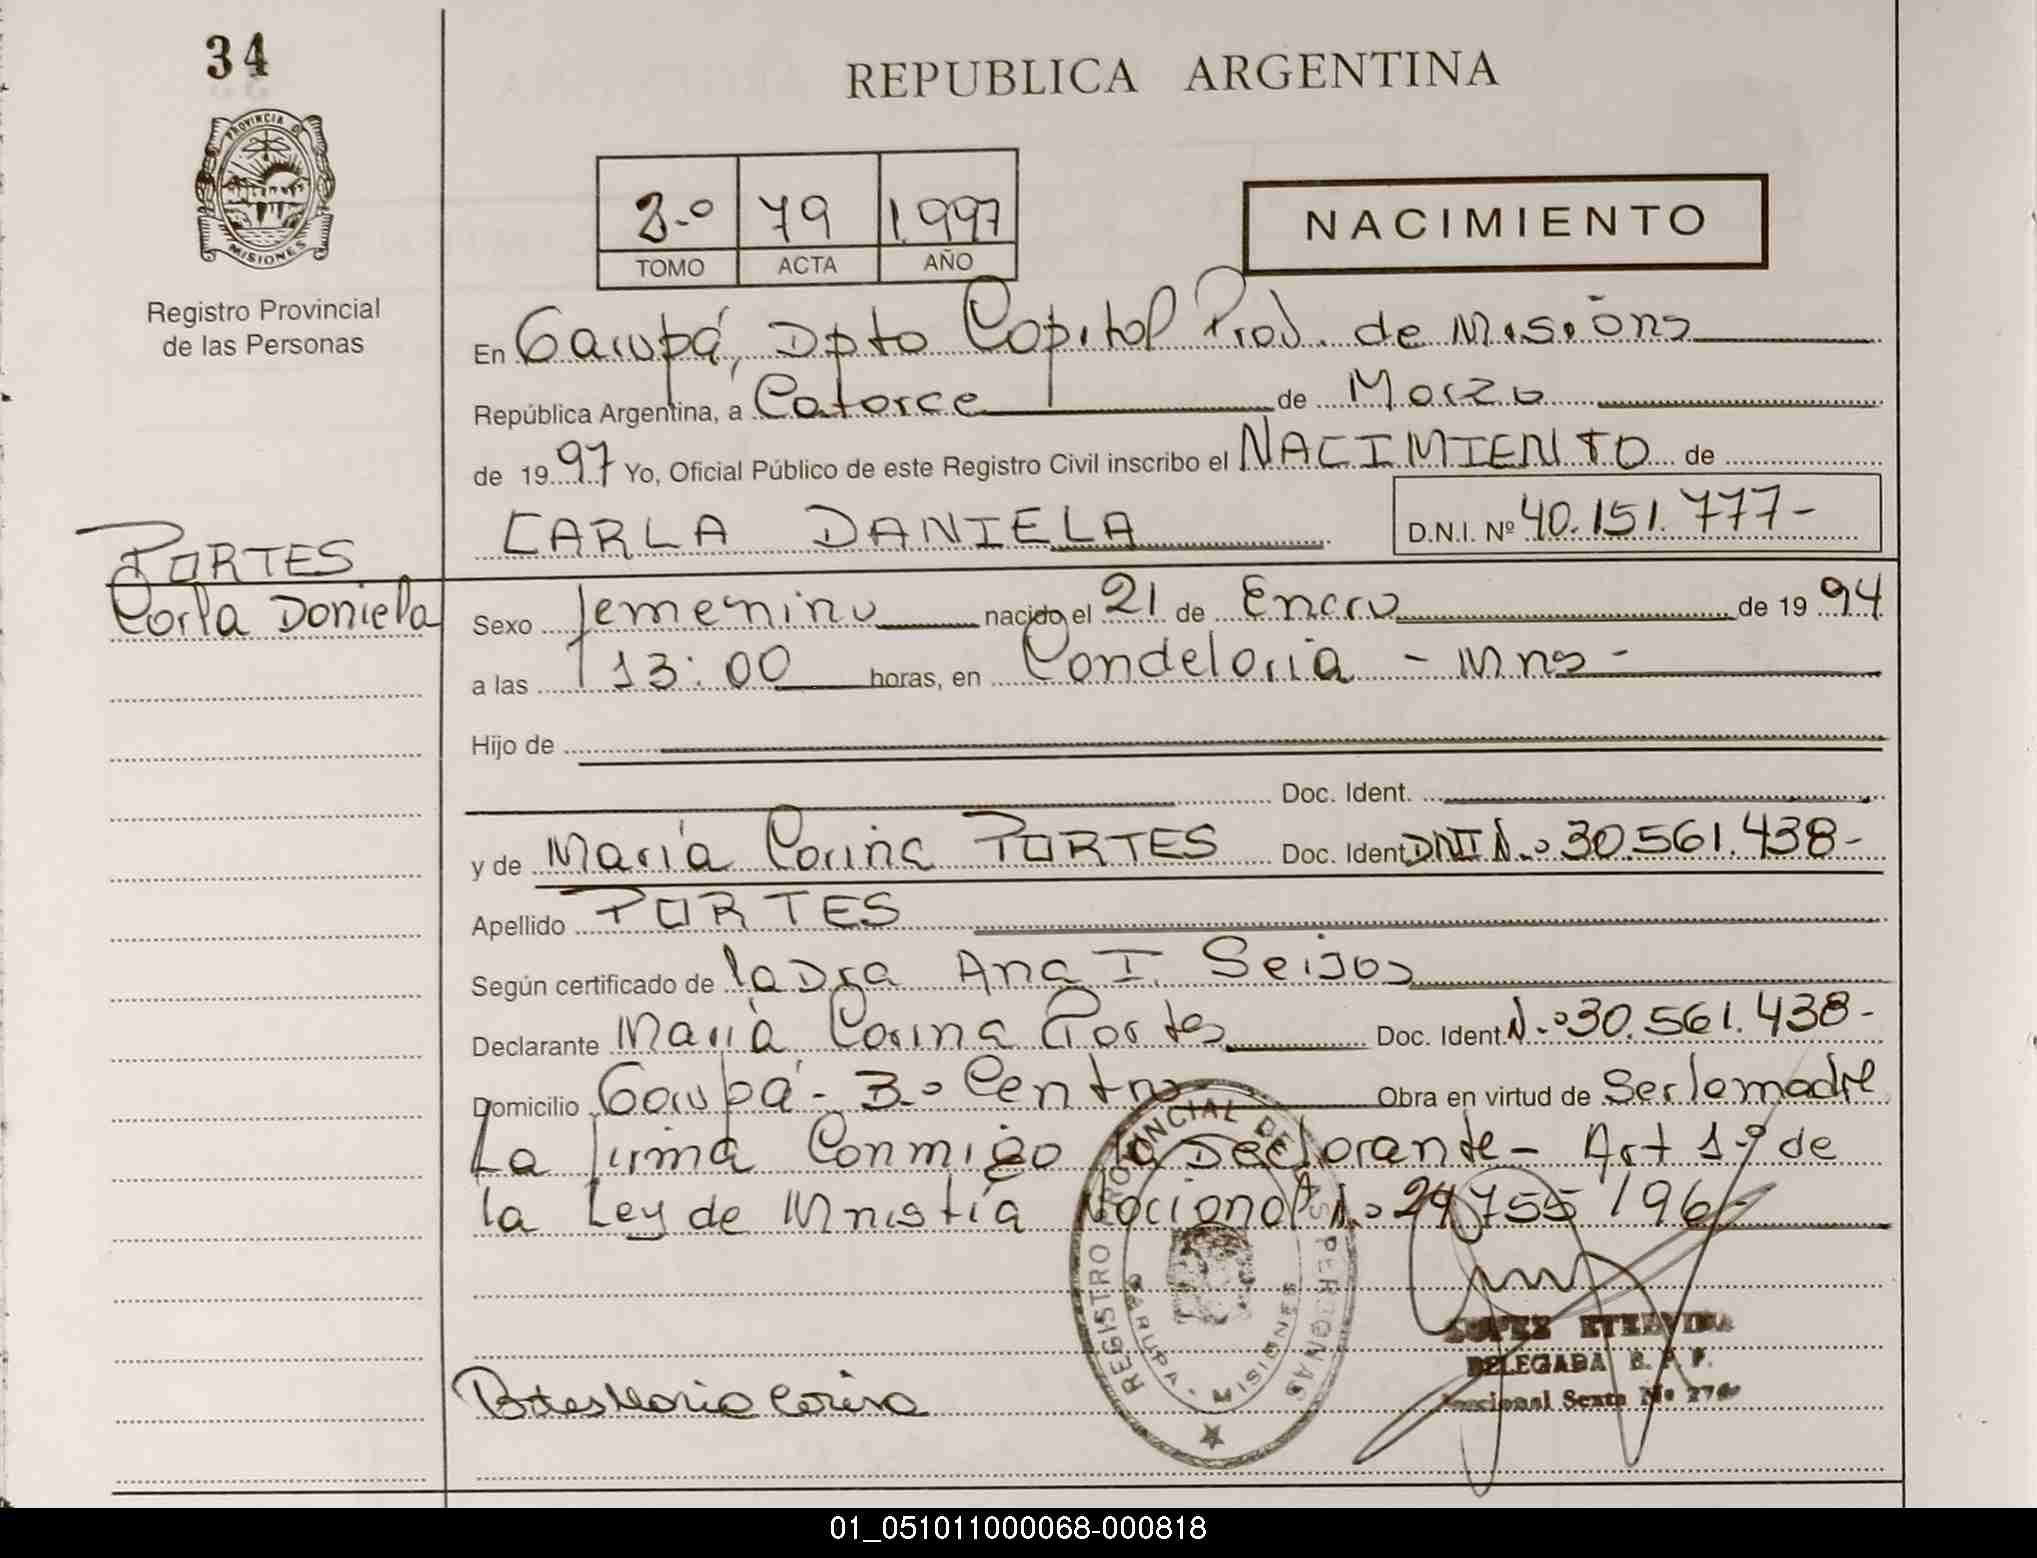 34
REPUBLICA ARGENTINA
PROVINCIA DE
MISIONES
Registro Provincial
de las Personas
2.º 79 1.997
TOMO ACTA AÑO
NACIMIENTO
En Garupá, Dpto Capital Prov. de Misiones
República Argentina, a Catorce de Marzo
de 1997 Yo, Oficial Público de este Registro Civil inscribo el NACIMIENTO de
CARLA DANIELA D.N.I. Nº 40.151.777-
PORTES
Carla Daniela
Sexo femenino nacido el 21 de Enero de 1994
a las 13:00 horas, en Candelaria - Mns -
Hijo de
Doc. Ident.
y de María Corina PORTES Doc. Ident DNI N.º 30.561.438-
Apellido PORTES
Según certificado de la Dra Ana I. Seijos
Declarante María Corina Portes Doc. Ident. N.º 30.561.438-
Domicilio Garupá - B.º Centro Obra en virtud de Ser la madre
La firma Conmigo la Declarante - Art 1.º de
la Ley de Mnistía Nacional N.º 24755/96-
REGISTRO PROVINCIAL DE LAS PERSONAS
GARUPA - MISIONES
LOPEZ ETELVINA
DELEGADA R. P. P.
Seccional Sexta Nº
Portes Maria Corina
01_051011000068-000818